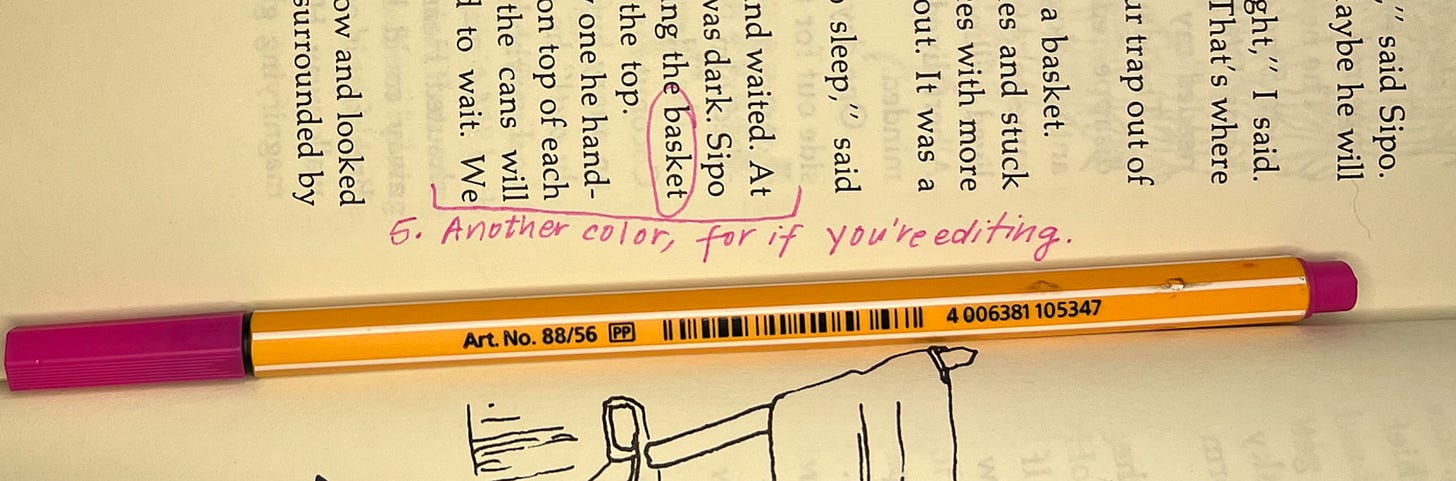 ," said Sipo.
aybe he will
ght," I said.
That's where
ur trap out of
a basket.
es and stuck
es with more
out. It was a
sleep," said
nd waited. At
was dark. Sipo
ng the basket
the top.
y one he hand-
on top of each
the cans will
d to wait. We
ow and looked
surrounded by
5. Another color, for if you're editing.
Art. No. 88/56 PP 4 006381 105347